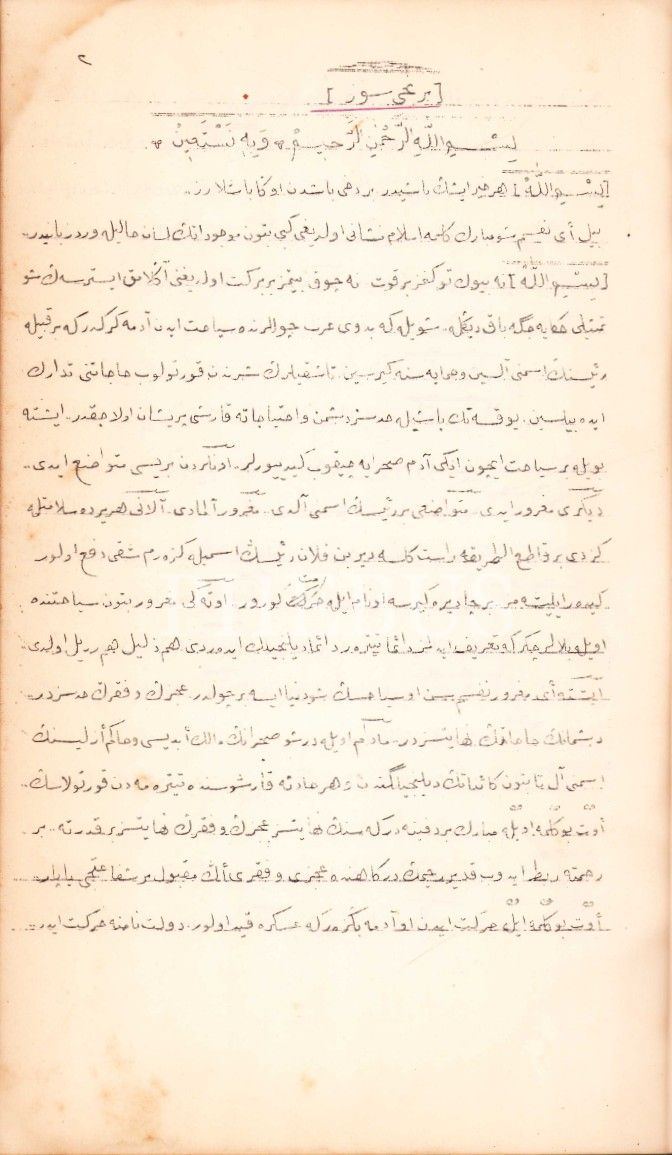 ٢
[برنجى سوز]
بِسْــمِ اللّٰهِ الرَّحْمٰنِ الرَّحِيــمِ ٭ وَبِهِ نَسْتَعِينُ ٭
[بِسْــمِ اللّٰهْ] هر خيرك باشيدر. بز دخى باشدن اوكا باشلارز..
بيل أى نفسم شو مبارك كلمه اسلام نشانى اولديغى كبى بتون موجوداتك لسان حاليله ورد زبانيدر..
[بِسْــمِ اللّٰهْ] نه بيوك توكنمز بر قوت نه چوق بيتمز بر بركت اولديغنى آكلامق ايسترسه ك شو
تمثيلى حكايه جكه باق ديكله.. شويله كه بدوى عرب چوللرنده سياحت ايدن آدمه كركدركه بر قبيله
رئيسنك اسمنى آلسين و حمايه سنه كيرسين. تا شقيلرك شرندن قورتولوب حاجاتنى تدارك
ايده بيلسين. يوقسه تك باشيله حدسز دشمن و احتياجاته قارشى پريشان اولاجقدر.. ايشته
بويله بر سياحت ايچون ايكى آدم صحرايه چيقوب كيدييورلر.. اونلردن بريسى متواضع ايدى..
ديكرى مغرور ايدى.. متواضعى بر رئيسك اسمنى آلدى.. مغرور آلمادى.. آلانى هر يرده سلامتله
كزدى بر قاطع الطريقه راست كلسه دير بن فلان رئيسك اسميله كزه رم شقى دفع اولور
بر چاديره كيرسه او نام ايله حرمت كورور.. اوته كى مغرور بتون سياحتنده
اويله بلالر چكر كه تعريف ايدلمز دائما تيتره ر دائما ديلنجيلك ايدردى هم ذليل هم رذيل اولدى..
ايشته أى مغرور نفسم سن او سياحسك شو دنيا ايسه بر چولدر. عجزك و فقرك حدسزدر..
دشمانك حاجاتك نهايتسزدر.. مادام اويله در شو صحرانك مالك أبديسى و حاكم أزليسنك
اسمنى آل تا بتون كائناتك ديلنجيلكندن و هر حادثه قارشوسنده تيتره مه دن قورتولاسك..
أوت بو كلمه اويله مبارك بر دفينه دركه سنك نهايتسز عجزك و فقرك نهايتسز بر قدرته.. بر
رحمته ربط ايدوب قدير رحيمك دركاهنده عجزى و فقرى أك مقبول بر شفاعتجى ياپار..
أوت بو كلمه ايله حركت ايدن او آدمه بكزركه عسكره قيد اولور. دولت نامنه حركت ايدر..